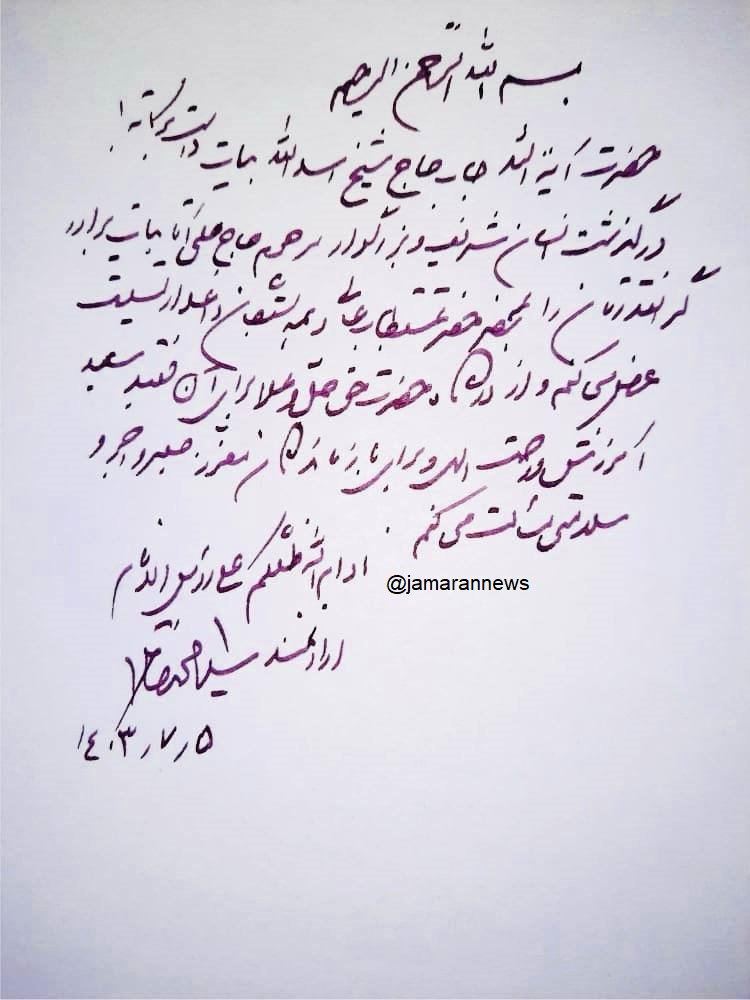 بسم الله الرحمن الرحیم
حضرت آیة الله جناب حاج شیخ اسدالله بیات دامت برکاته
درگذشت انسان شریف و بزرگوار مرحوم حاج علی آقا بیات برادر
گرانقدرتان را محضر حضرتمستطاب عالی و همه بستگان داغدار تسلیت
عرض می کنم و از درگاه حضرت حق جل و علا برای آن فقید سعید
آمرزش و رحمت الهی و برای بازماندگان معزز صبر و اجر و
سلامتی مسألت می کنم.
ادام الله ظلکم علی رؤس الانام
@jamarannews
ارادتمند سید محمد خاتمی
۱۴۰۳ر۷ر۵